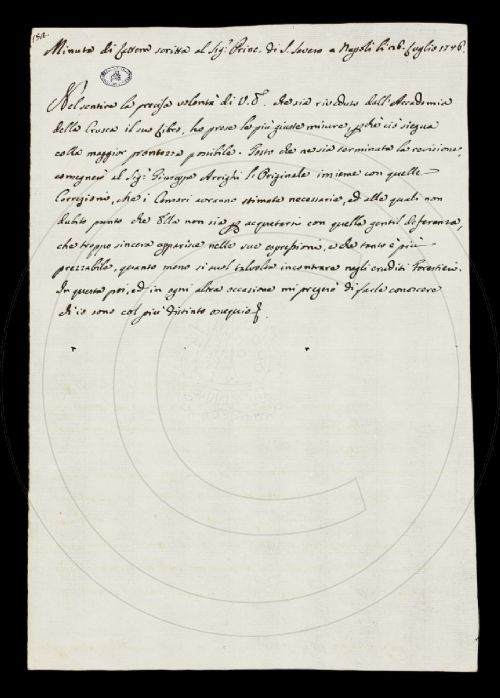 Minuta di lettera scritta al Sig.r Princ. di S. Severo a Napoli li 26. Luglio 1746.
Nel sentire la precisa volontà di V. E. che sia riveduto dall'Accademia
della Crusca il suo Libro, ho prese le più giuste misure, perchè ciò siegua
colla maggior prontezza possibile. Tosto che ne sia terminata la revisione,
consegnerò al Sig.r Giuseppe Arrighi l'Originale insieme con quelle
Correzioni, che i Censori avranno stimate necessarie, ed alle quali non
dubito punto che Ella non sia per acquetarsi con quella gentil deferenza,
che troppo sincera apparisce nelle sue espressioni, e che tanto è più
prezzabile, quanto meno si suol talvolta incontrare negli eruditi Forestieri.
In questa poi, ed in ogni altra occasione mi pregerò di farle conoscere
ch'io sono col più distinto ossequio